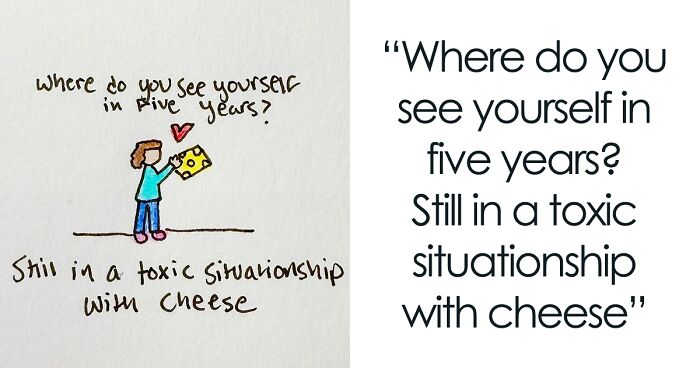 Where do you see yourself
in Five years?
Still in a toxic situationship
with cheese
“Where do you
see yourself in
five years?
Still in a toxic
situationship
with cheese”